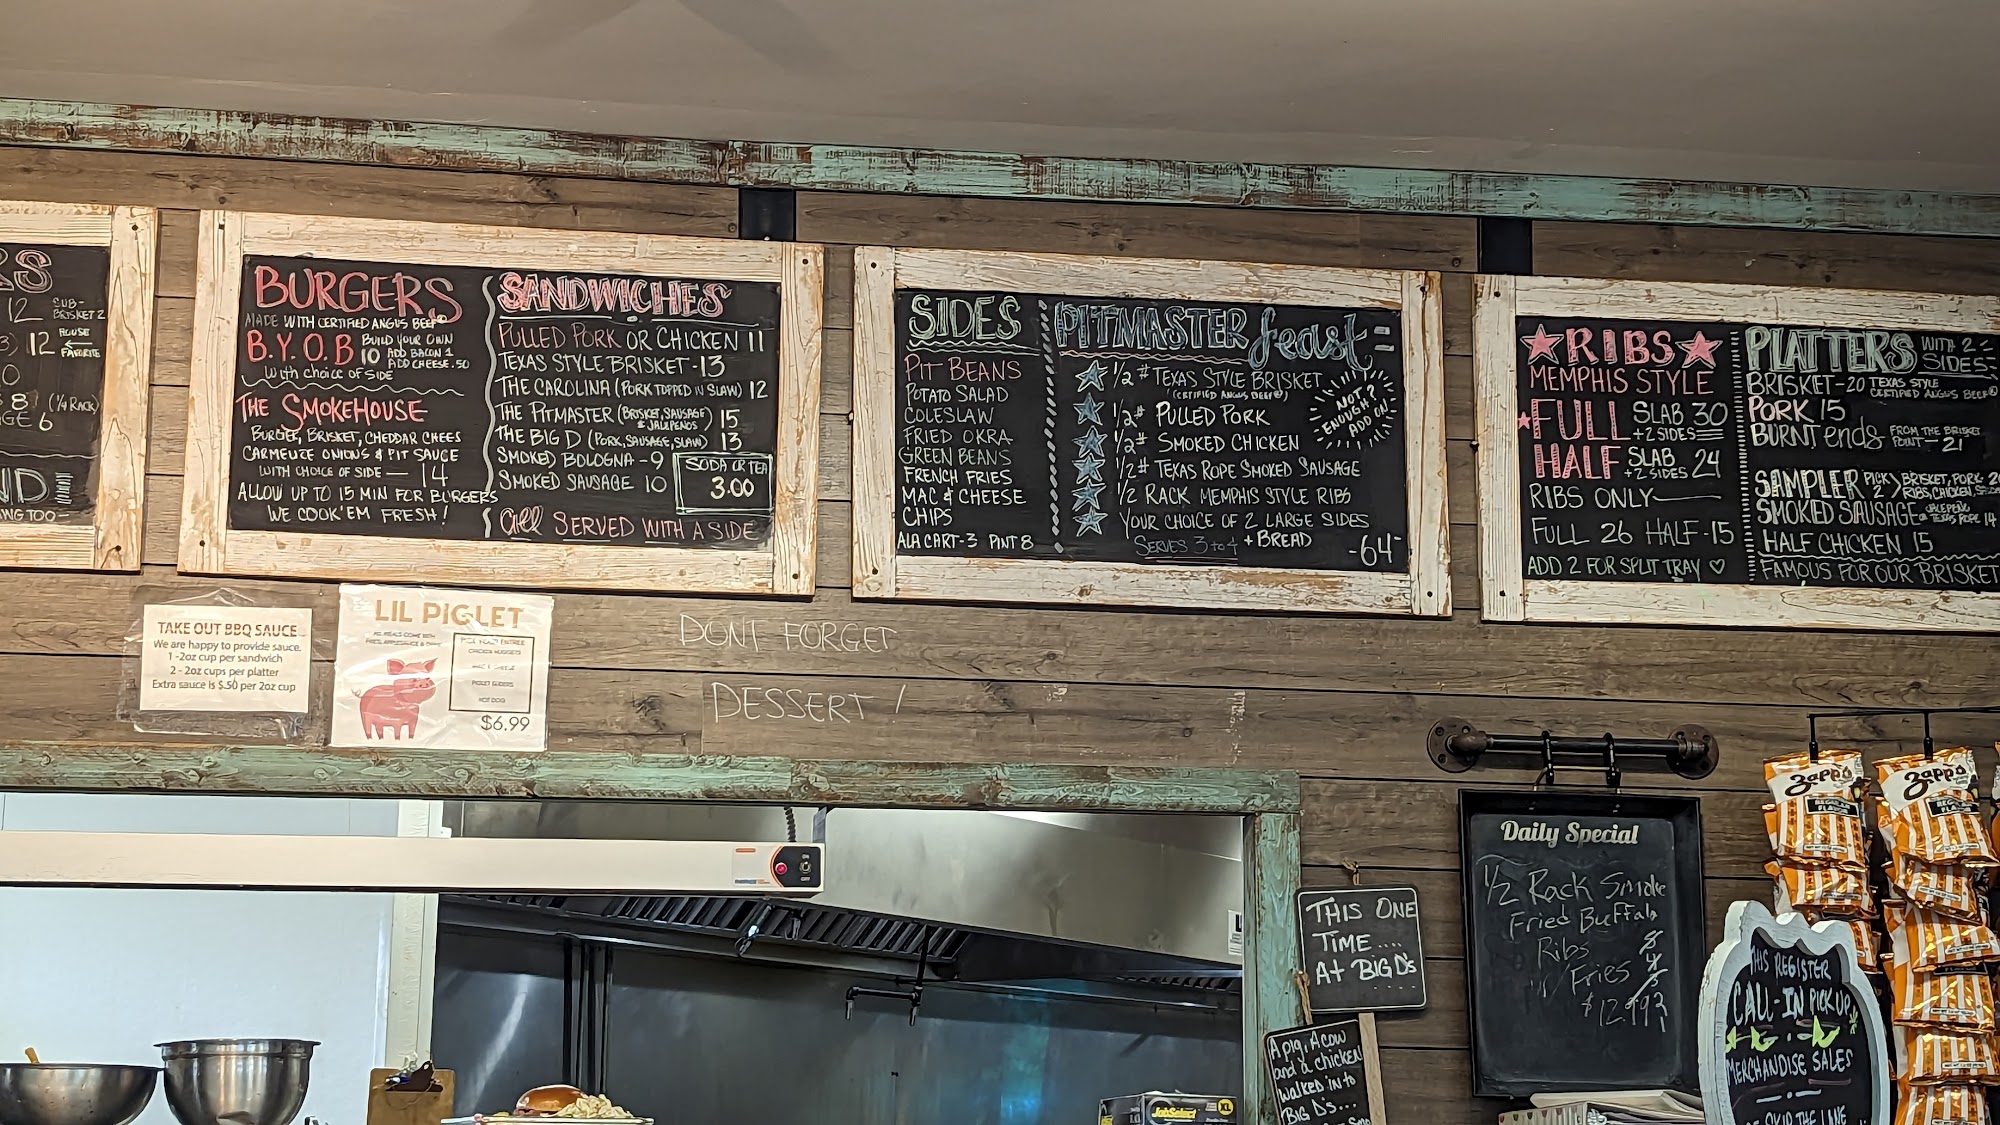 12 SUB-
BRISKET 2
12 HOUSE
FAVORITE
8 (1/4 RACK)
6
BURGERS
MADE WITH CERTIFIED ANGUS BEEF®
B.Y.O.B 10 BUILD YOUR OWN
ADD BACON 1
ADD CHEESE .50
WITH CHOICE OF SIDE
THE SMOKEHOUSE
BURGER, BRISKET, CHEDDAR CHEES
CARMELIZE ONIONS & PIT SAUCE
WITH CHOICE OF SIDE — 14
ALLOW UP TO 15 MIN FOR BURGERS
WE COOK'EM FRESH!
SANDWICHES
PULLED PORK OR CHICKEN 11
TEXAS STYLE BRISKET - 13
THE CAROLINA (PORK TOPPED IN SLAW) 12
THE PITMASTER (BRISKET, SAUSAGE & JALEPENOS) 15
THE BIG D (PORK, SAUSAGE, SLAW) 13
SMOKED BOLOGNA - 9
SMOKED SAUSAGE 10
SODA OR TEA
3.00
all SERVED WITH A SIDE
SIDES
PIT BEANS
POTATO SALAD
COLESLAW
FRIED OKRA
GREEN BEANS
FRENCH FRIES
MAC & CHEESE
CHIPS
ALA CART - 3 PINT 8
PITMASTER feast
1/2 # TEXAS STYLE BRISKET
(CERTIFIED ANGUS BEEF®)
1/2# PULLED PORK
1/2# SMOKED CHICKEN
1/2# TEXAS ROPE SMOKED SAUSAGE
1/2 RACK MEMPHIS STYLE RIBS
YOUR CHOICE OF 2 LARGE SIDES
SERVES 3 to 4 + BREAD
-64-
NOT?
ENOUGH?
ADD ON!
RIBS
MEMPHIS STYLE
FULL SLAB 30
+2 SIDES
HALF SLAB 24
+2 SIDES
RIBS ONLY
FULL 26 HALF - 15
ADD 2 FOR SPLIT TRAY ♡
PLATTERS WITH 2
SIDES
BRISKET - 20 TEXAS STYLE
CERTIFIED ANGUS BEEF®
PORK 15
BURNT ends FROM THE BRISKET
POINT - 21
SAMPLER PICK 2 > BRISKET, PORK
RIBS, CHICKEN,
SMOKED SAUSAGE JALEPENO
OR TEXAS ROPE 14
HALF CHICKEN 15
FAMOUS FOR OUR BRISKET
TAKE OUT BBQ SAUCE
We are happy to provide sauce.
1 -2oz cup per sandwich
2 - 2oz cups per platter
Extra sauce is $.50 per 2oz cup
LIL PIGLET
ALL MEALS COME WITH
FRIES, APPLESAUCE & DRINK
PICK YOUR ENTREE
CHICKEN NUGGETS
MAC & CHEESE
PIGLET SLIDERS
HOT DOG
$6.99
DONT FORGET
DESSERT!
Daily Special
1/2 Rack Smoke
Fried Buffalo
Ribs
w/ Fries
$12.99
THIS ONE
TIME....
At BIG D's
A pig, A cow
and a chicken
walked in to
BIG D's...
THIS REGISTER
CALL-IN PICK UP
&
MERCHANDISE SALES
SKIP THE LINE
Zapp's
REGULAR
FLAVOR
Zapp's
REGULAR
FLAVOR
ON
OFF
JobSelect
XL